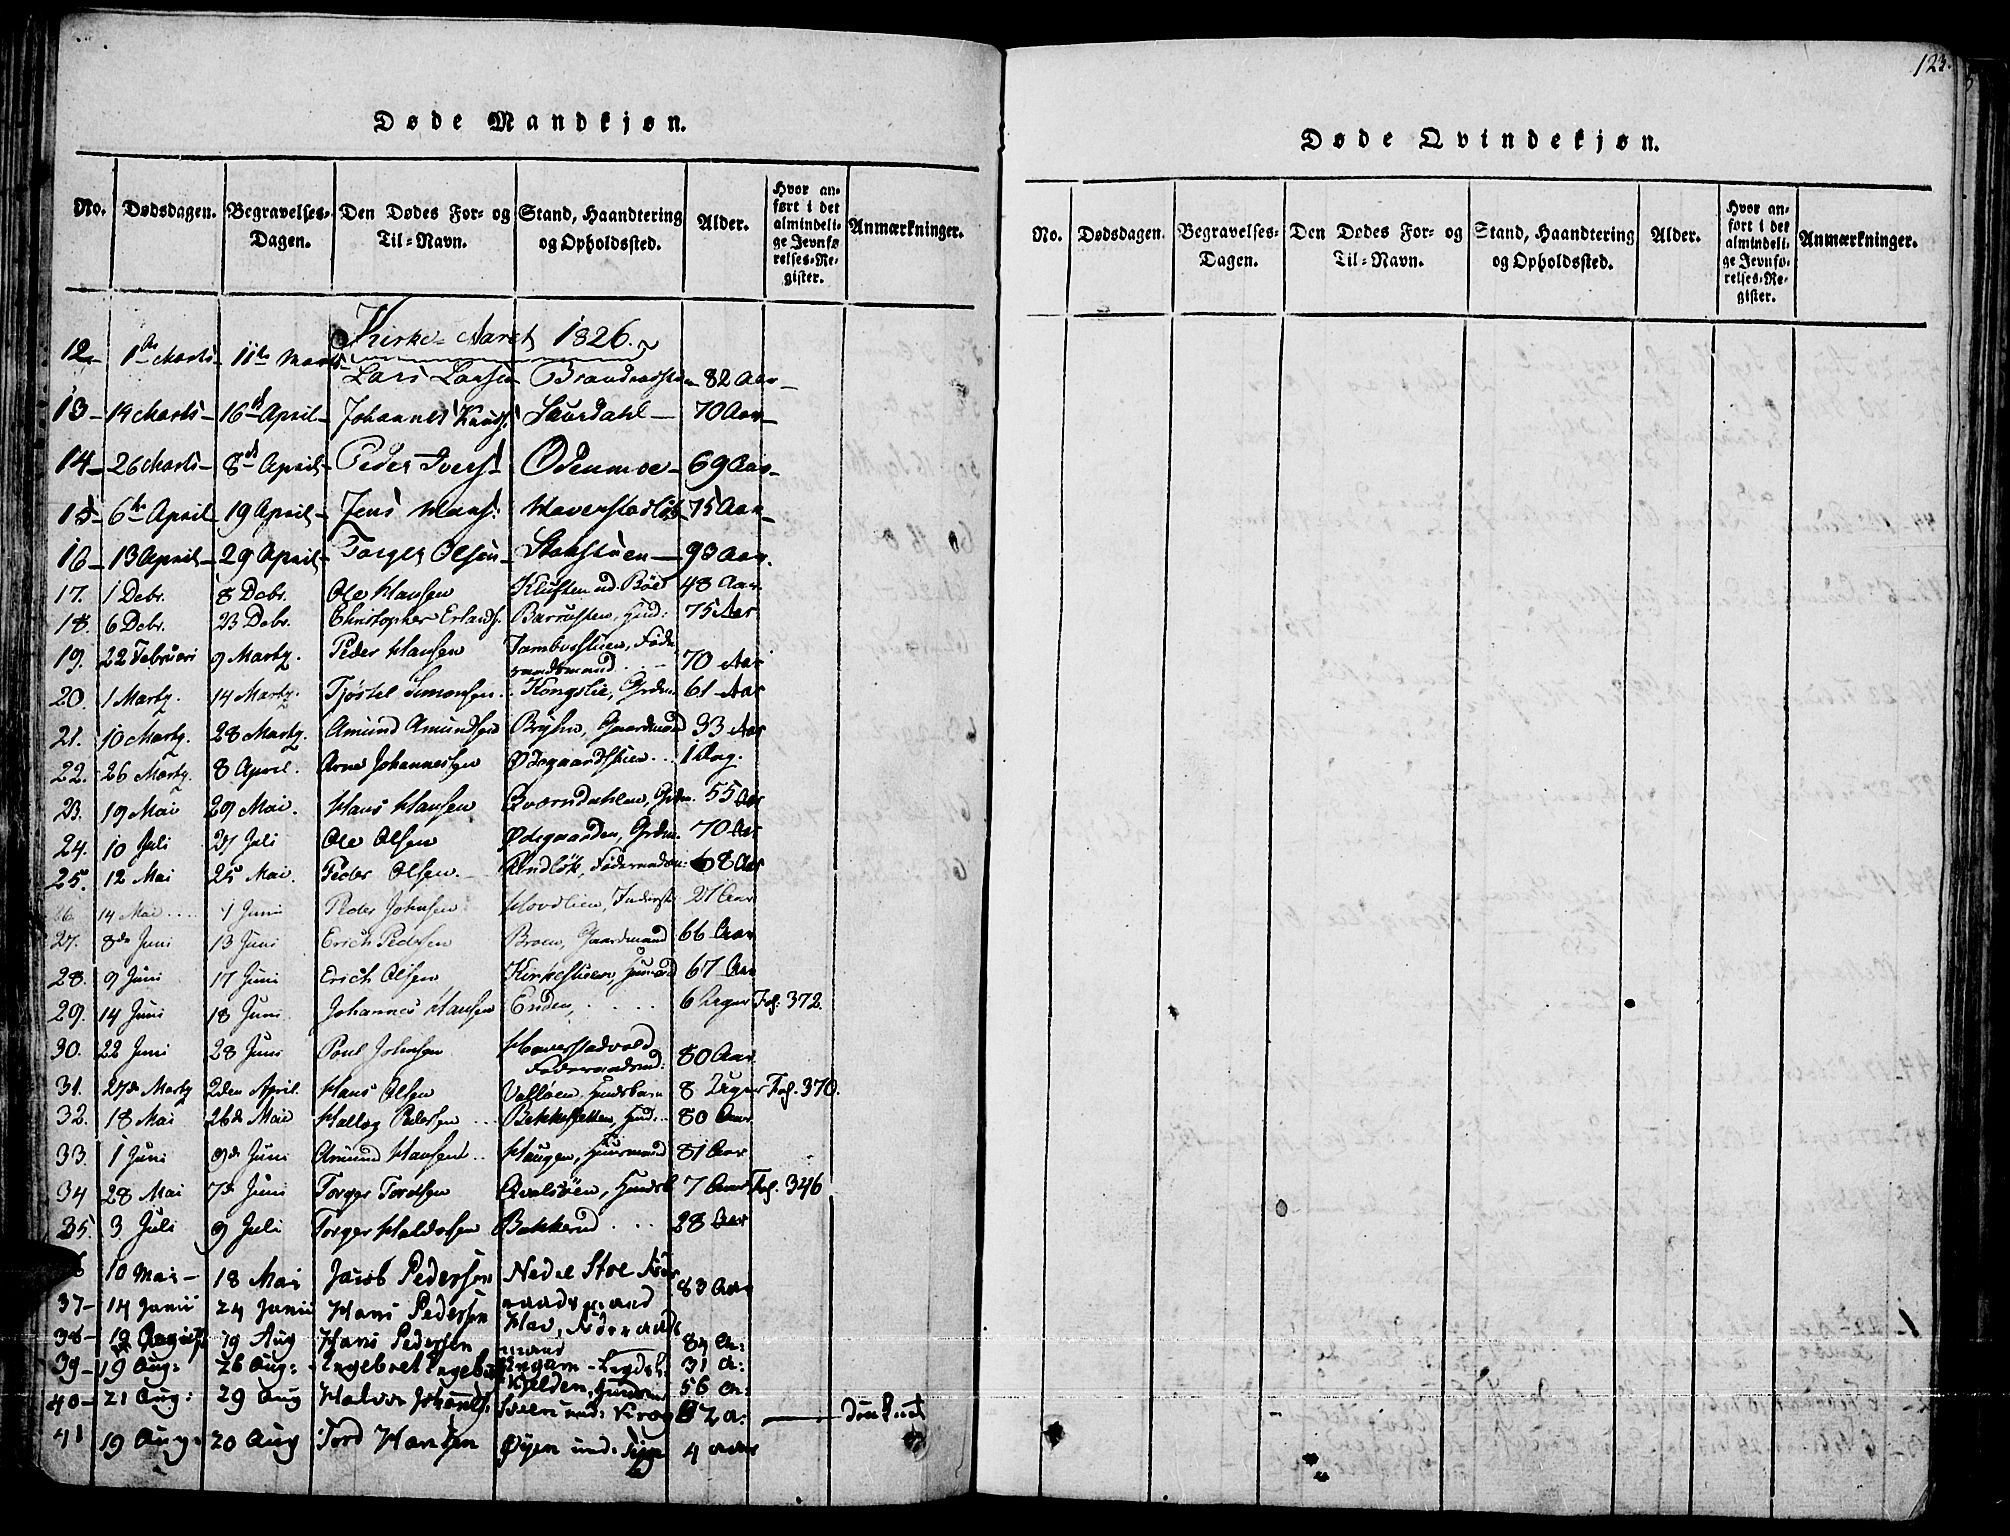 Døde Mandkjøn.
No. Dødsdagen. Begravelses-Dagen. Den Dødes For- og Til-Navn. Stand, Haandtering og Opholdssted. Alder. Hvor anført i det almindelige Jevnførelses-Register. Anmærkninger.
Kirke-Aaret 1826.
12 1ste Marts 11te Marts Lars Larsen 82 Aar
13 14 Marts 16de April Johannes Knuds: Saurdahl 70 Aar
14 26 Marts 8de April Peder Ivers: Odenmoe 69 Aar
15 6te April 19 April Jens Hans: 75 Aar
16 13 April 29 April Torger Olsen Stokstuen 93 Aar.
17. 1 Debr. 8 Debr. Ole Hansen Kluften ud. Böe 48 Aar.
18. 6 Debr. 23 Debr. Christopher Erlands. 75 Aar
19. 22 Februari 9 Marty. Peder Hansen 70 Aar
20. 1 Marty. 14 Marty. Tjöstel Simensen Kongslie, Grdm. 61 Aar
21. 10 Marty. 28 Marty. Amund Amundsen Bryhn, Gaardmand 33 Aar
22. 26 Marty. 8 April. Arne Johannesen Ødegaardstuen 1 Dag.
23. 19 Mai 29 Mai. Hans Hansen Qvärndahlen, Grdm. 55 Aar
24. 10 Juli 27 Juli Ole Olsen Ødegaarden, Grdm. 70 Aar
25. 12 Mai 25 Mai. Peder Olsen 68 Aar
26. 14 Mai 1 Juni Peder Johnsen Hovdlien, Inderst 27 Aar
27. 8de Juni 13 Juni Erich Pedersen Broen, Gaardmand 66 Aar
28. 9 Juni 17 Juni Erich Olsen Kirkestuen, Huusmd 67 Aar
29. 14 Juni 18 Juni Johannes Hansen Enden, 6 Uger Fol. 372.
30. 22 Juni 28 Juni Poul Johnsen Haverstadvold Föderaadsmd: 80 Aar
31. 27de Marty 2den April. Hans Olsen Huusbarn 8 Uger Fol. 370.
32. 18 Mai 26de Mai Pedersen 80 Aar
33. 1 Juni 9de Juni Amund Hansen Haugen, Huusmand 81 Aar
34 28 Mai 7de Juni Torger Tordsen 7 Aar Fol. 346
35. 3 Juli 9 Juli Torger Haldorsen Bakkerud 28 Aar
10 Mai 18 Mai Jacob Pedersen Nedre Stoe Föderaadsmand 83 Aar
37 14 Junii 24 Junii Hans Pedersen
38 12 August 19 Aug Hans Pedersen 84 A:
39 19 Aug: 26 Aug: Engebret 31 A:
40 21 Aug: 29 Aug Halvor 56 A:
41 19 Aug: 20 Aug Tord Hansen Øyen 4 Aar
123.
Døde Qvindekjøn.
No. Dødsdagen. Begravelses-Dagen. Den Dødes For- og Til-Navn. Stand, Haandtering og Opholdssted. Alder. Hvor anført i det almindelige Jevnførelses-Register. Anmærkninger.